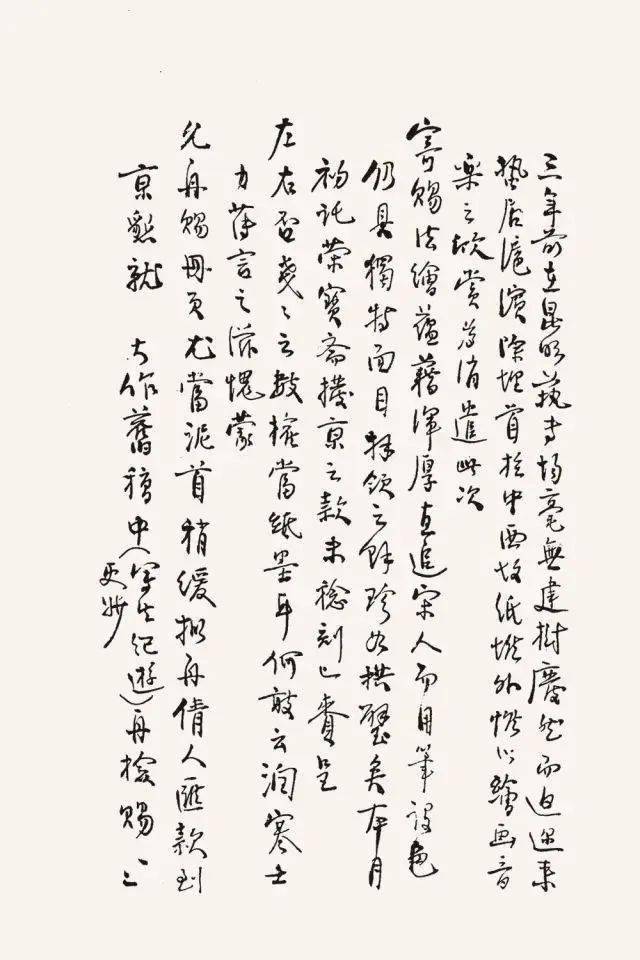 三年前在昆明藝專場毫無建樹廢然而迫返來
蟄居滬濱除埋首於中西故紙堆外惟以繪画音
樂之欣赏為消遣此次
寄賜法繪蘊藉渾厚直追宋人而用筆設色
仍具獨特面目拜領之餘珍如拱璧矣本月
初託荣寶斋撥京之款未稔刻已賫呈
左右否戔戔之数権當紙墨耳何敢云潤寒士
力薄言之滋愧蒙
允再賜冊頁尤當泥首稍缓擬再倩人匯款到
京懇就 大作舊稿中(写生纪遊)再撿賜一二
更妙